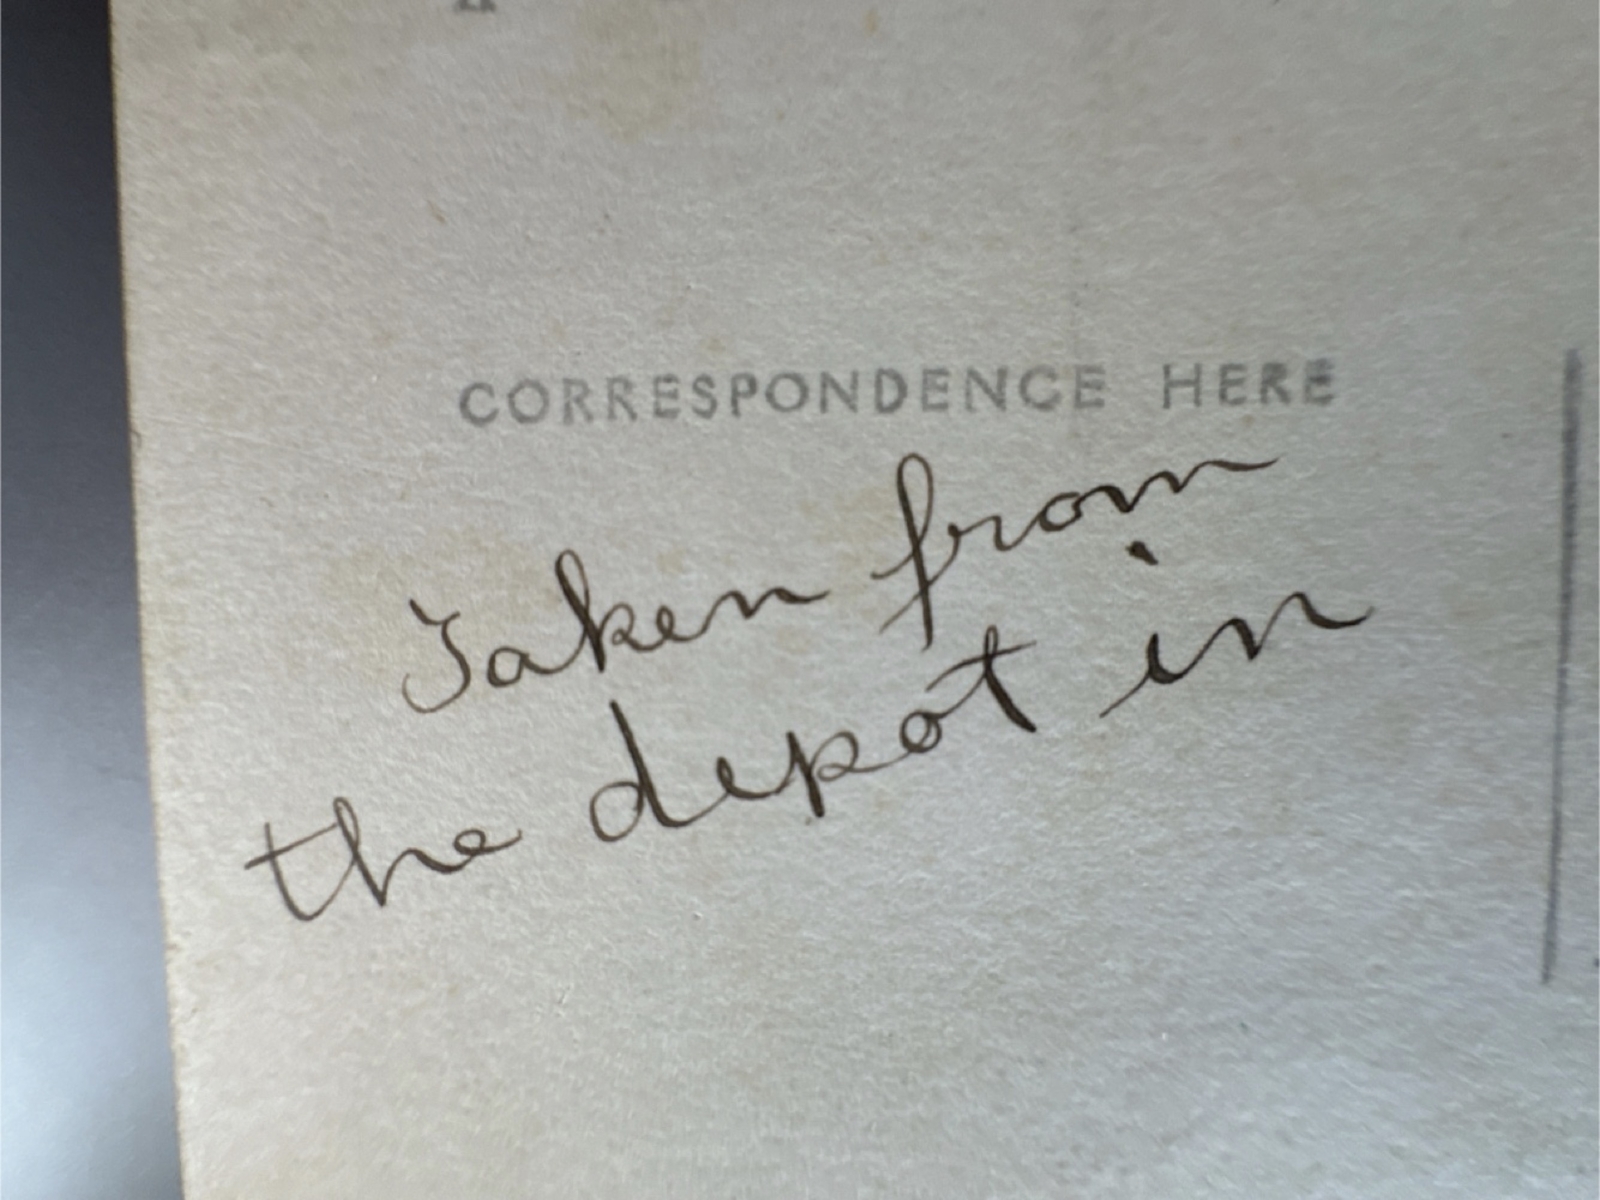 CORRESPONDENCE HERE
Taken from
the depot in